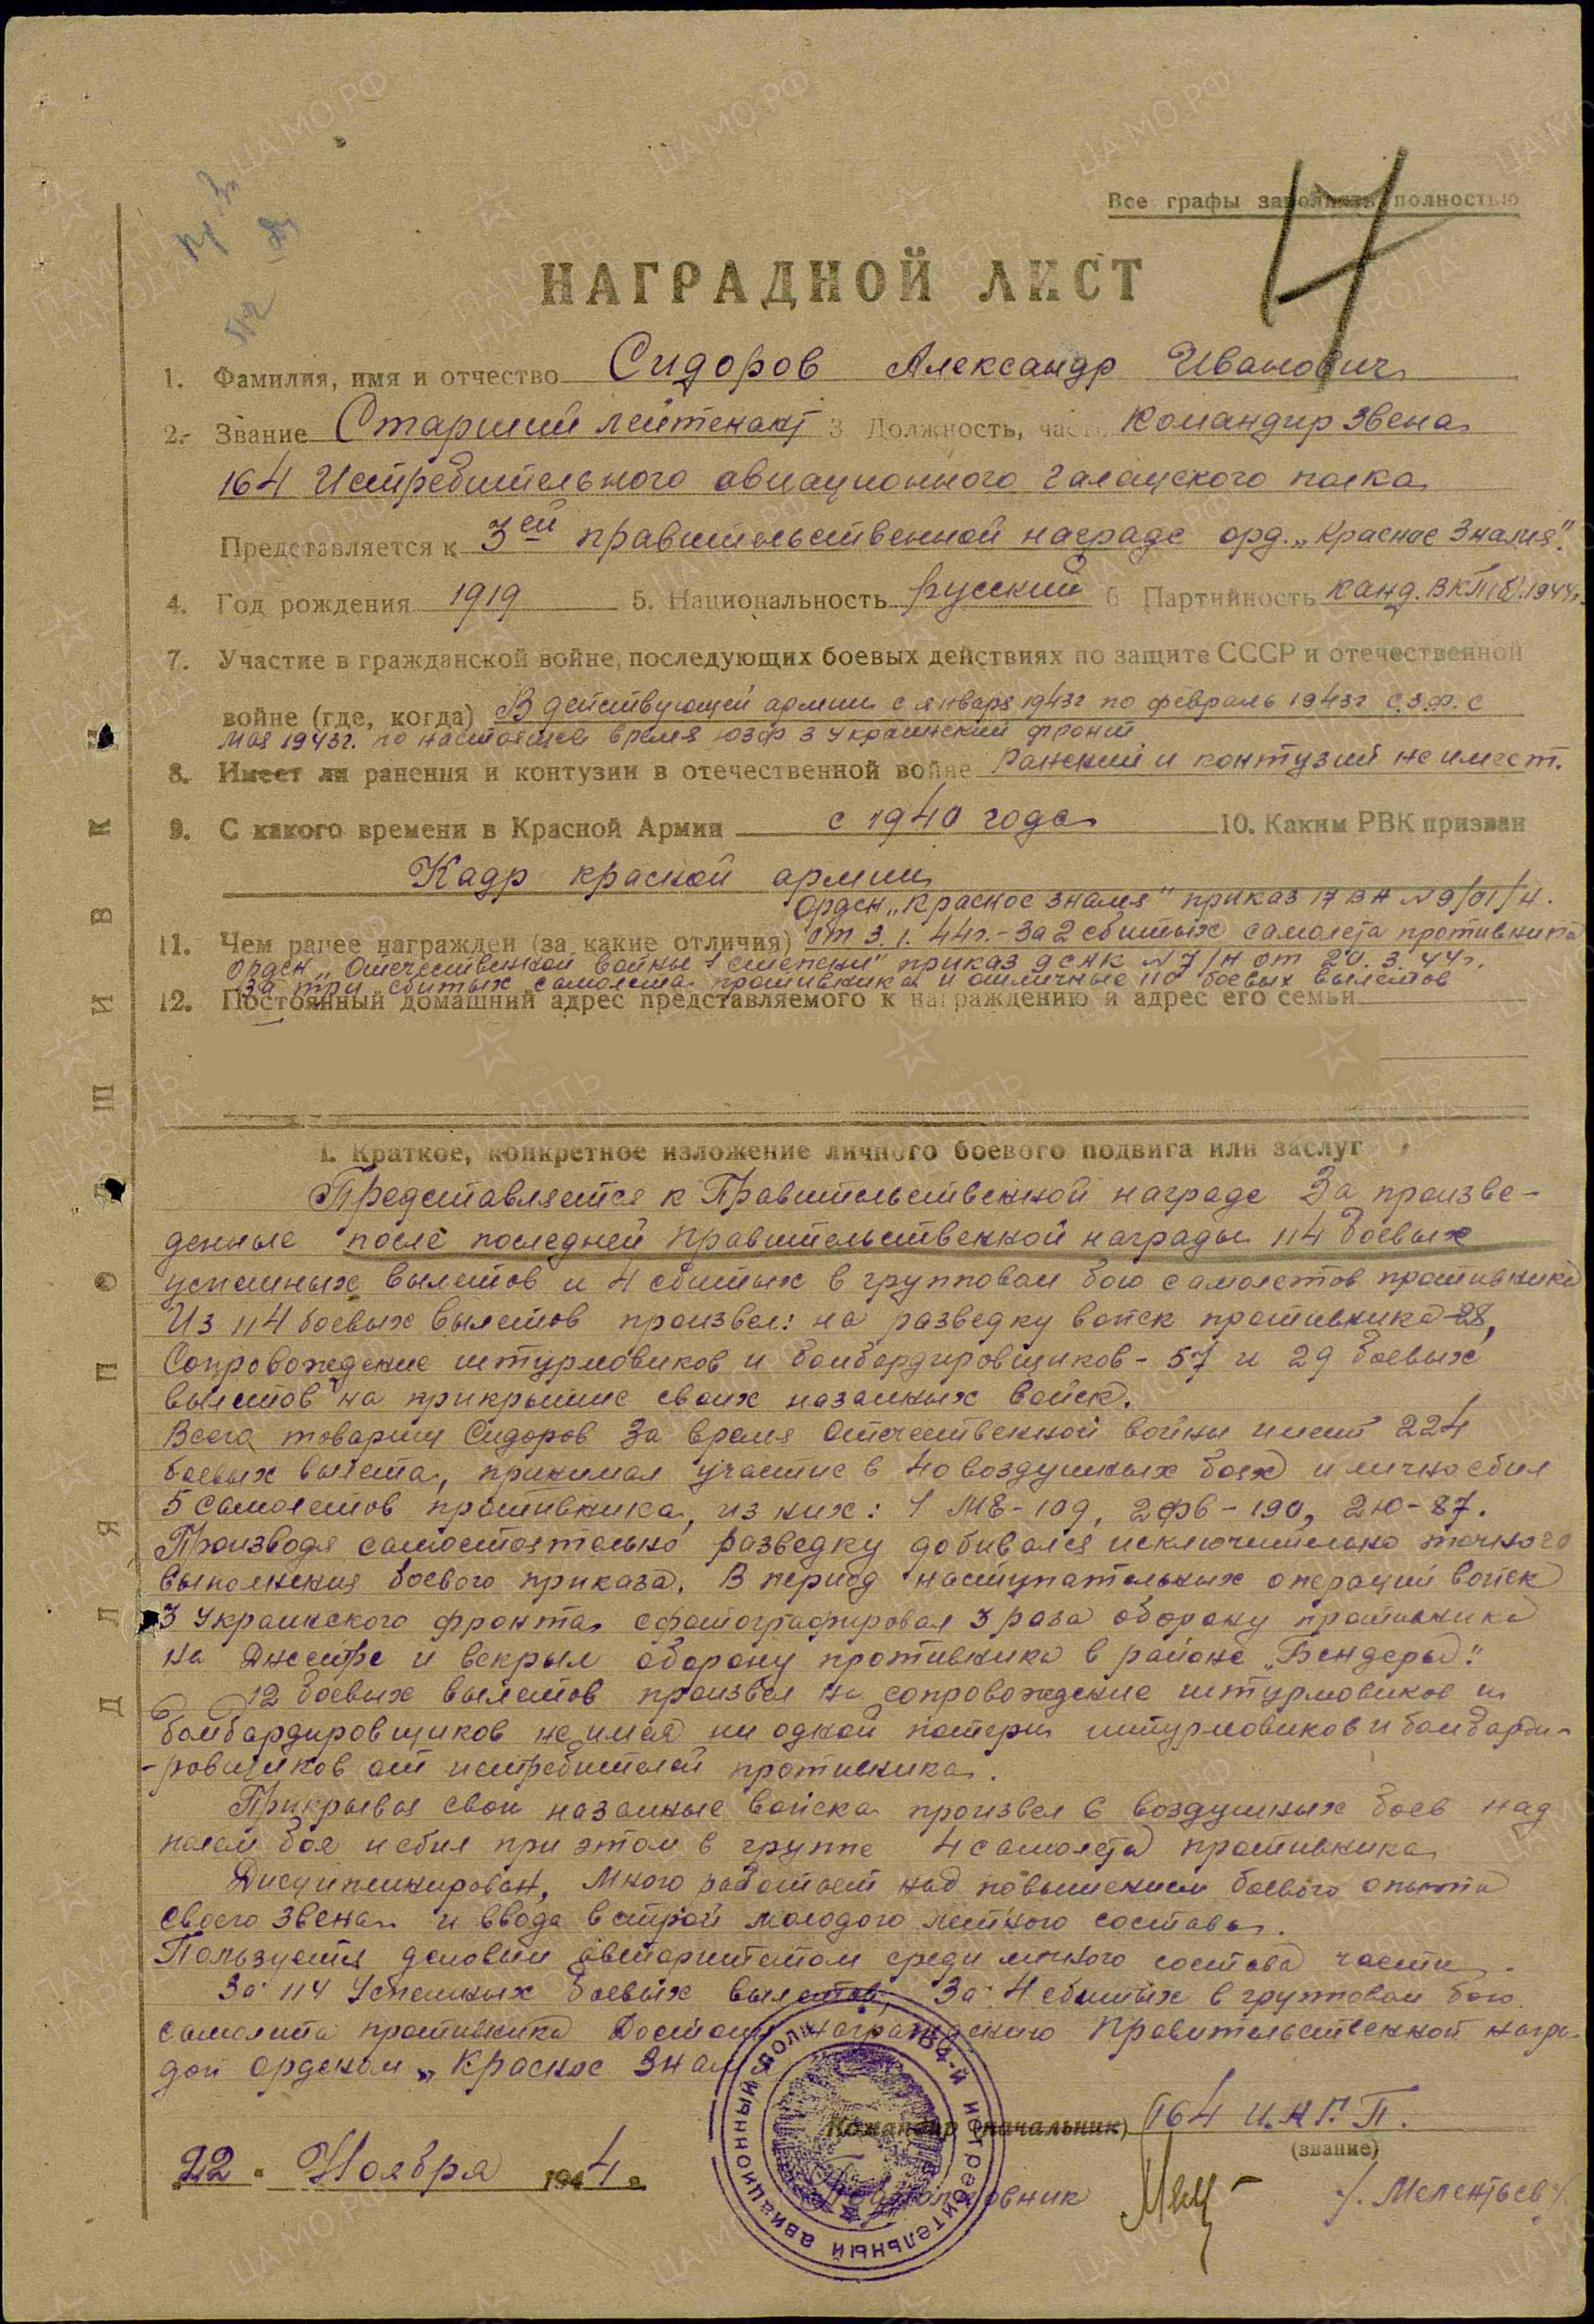 Все графы заполнять полностью
17
НАГРАДНОЙ ЛИСТ
1. Фамилия, имя и отчество Сидоров Александр Иванович
2. Звание Старший лейтенант 3 Должность, часть Командир Звена
164 Истребительного авиационного Галацского полка
Представляется к 3ей правительственной награде орд. „Красное Знамя".
4. Год рождения 1919 5. Национальность русский 6 Партийность канд. ВКП(б). 1944г.
7. Участие в гражданской войне, последующих боевых действиях по защите СССР и отечественной
войне (где, когда) В действующей армии с января 1943г по февраль 1943г С.З.Ф. с
мая 1943г. по настоящее время ЮЗФ 3 Украинский фронт
8. Имеет ли ранения и контузии в отечественной войне Ранений и контузий не имеет.
9. С какого времени в Красной Армии с 1940 года 10. Каким РВК призван
Кадр красной армии
Орден „Красное знамя" приказ 17 ВА №9/01/Н.
11. Чем ранее награжден (за какие отличия) от 3.1.44г.-За 2 сбитых самолета противника
орден „Отечественной войны 1 степени" приказ 9САК №7/Н от 20.3.44г.
за три сбитых самолета противника и отличные 110 боевых вылетов
12. Постоянный домашний адрес представляемого к награждению и адрес его семьи
I. Краткое, конкретное изложение личного боевого подвига или заслуг
Представляется к Правительственной награде За произве-
денные после последней правительственной награды 114 боевых
успешных вылетов и 4 сбитых в групповом бою самолетов противника
Из 114 боевых вылетов произвел: на разведку войск противника-28,
Сопровождение штурмовиков и бомбардировщиков - 57 и 29 боевых
вылетов на прикрытие своих наземных войск.
Всего товарищ Сидоров За время Отечественной войны имеет 224
боевых вылета, принимал участие в 40 воздушных боях и лично сбил
5 самолетов противника, из них: 1 МЕ-109, 2 ФВ-190, 2 Ю-87.
Производя самостоятельно разведку добивался исключительно точного
выполнения боевого приказа. В период наступательных операций войск
3 Украинского фронта сфотографировал 3 раза оборону противника
на Днестре и вскрыл оборону противника в районе „Бендеры".
12 боевых вылетов произвел на сопровождение штурмовиков и
бомбардировщиков не имея ни одной потери штурмовиков и бомбарди-
-ровщиков от истребителей противника.
Прикрывая свои наземные войска произвел 6 воздушных боев над
полем боя и сбил при этом в группе 4 самолета противника
Дисциплинирован, много работает над повышением боевого опыта
своего звена и ввода в строй молодого летного состава.
Пользуется деловым авторитетом среди личного состава части.
За 114 Успешных боевых вылетов, За 4 сбитых в групповом бою
самолета противника Достоин награждению Правительственной награ-
дой орденом „Красное Знамя
Командир (начальник) 164 И.А.Г.П.
(звание)
22 " Ноября 1944 г.
Подполковник /. Мелентьев/.
164-й истребительный авиационный полк
ДЛЯ ПОДШИВКИ